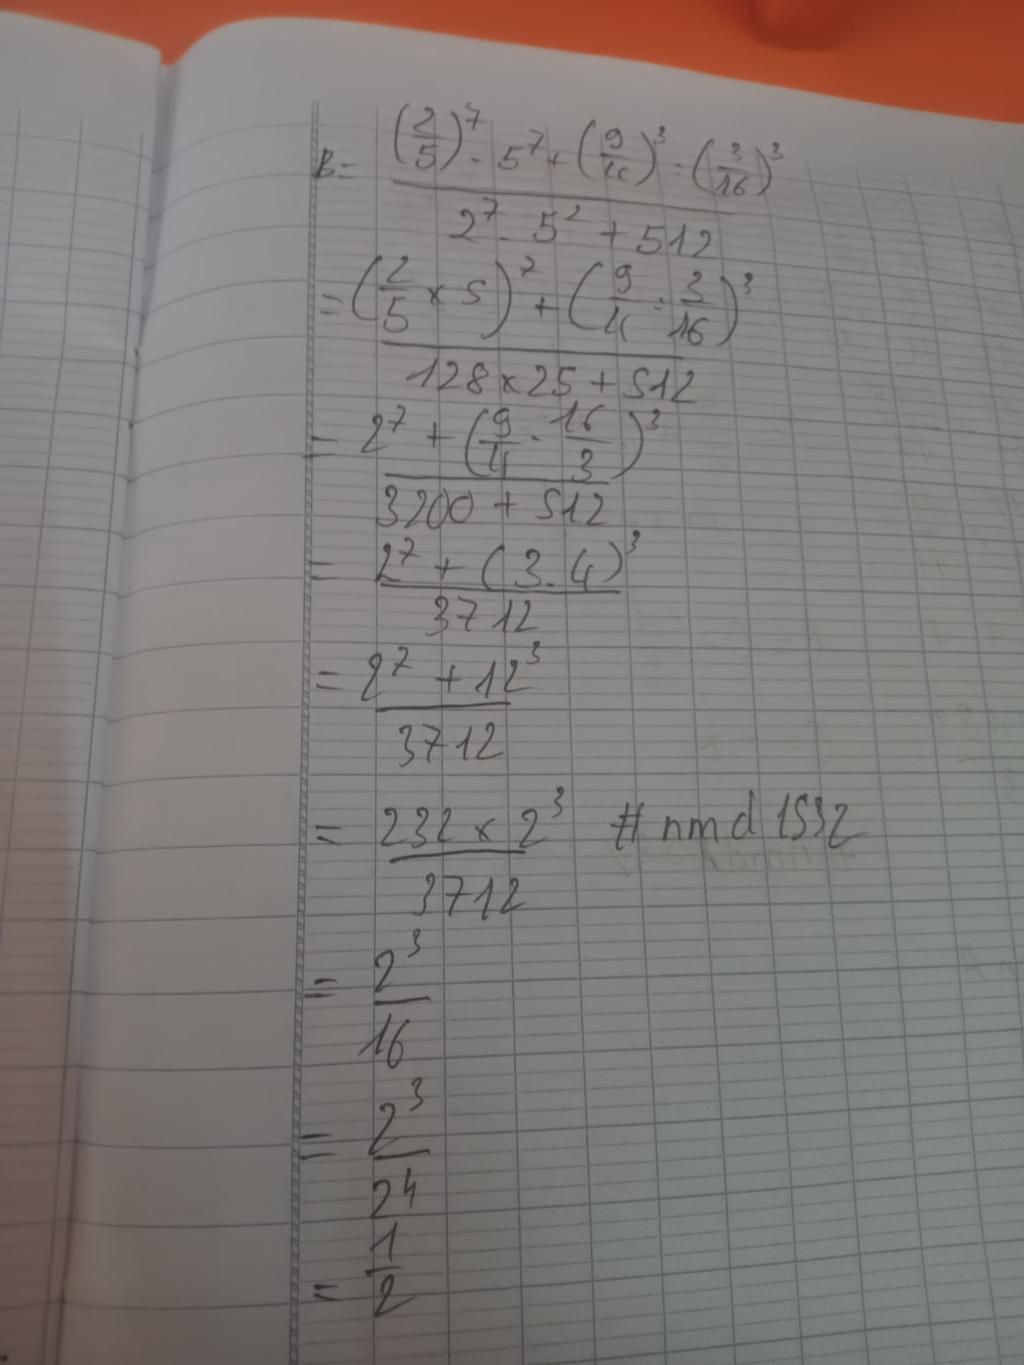 B = ((2/5)^7 · 5^7 + (9/4)^3 : (3/16)^3) / (2^7 · 5^2 + 512)
= ((2/5 × 5)^7 + (9/4 : 3/16)^3) / (128 × 25 + 512)
= (2^7 + (9/4 · 16/3)^3) / (3200 + 512)
= (2^7 + (3 · 4)^3) / 3712
= (2^7 + 12^3) / 3712
= (232 × 2^3) / 3712 # nmd 1532
= 2^3 / 16
= 2^3 / 2^4
= 1 / 2